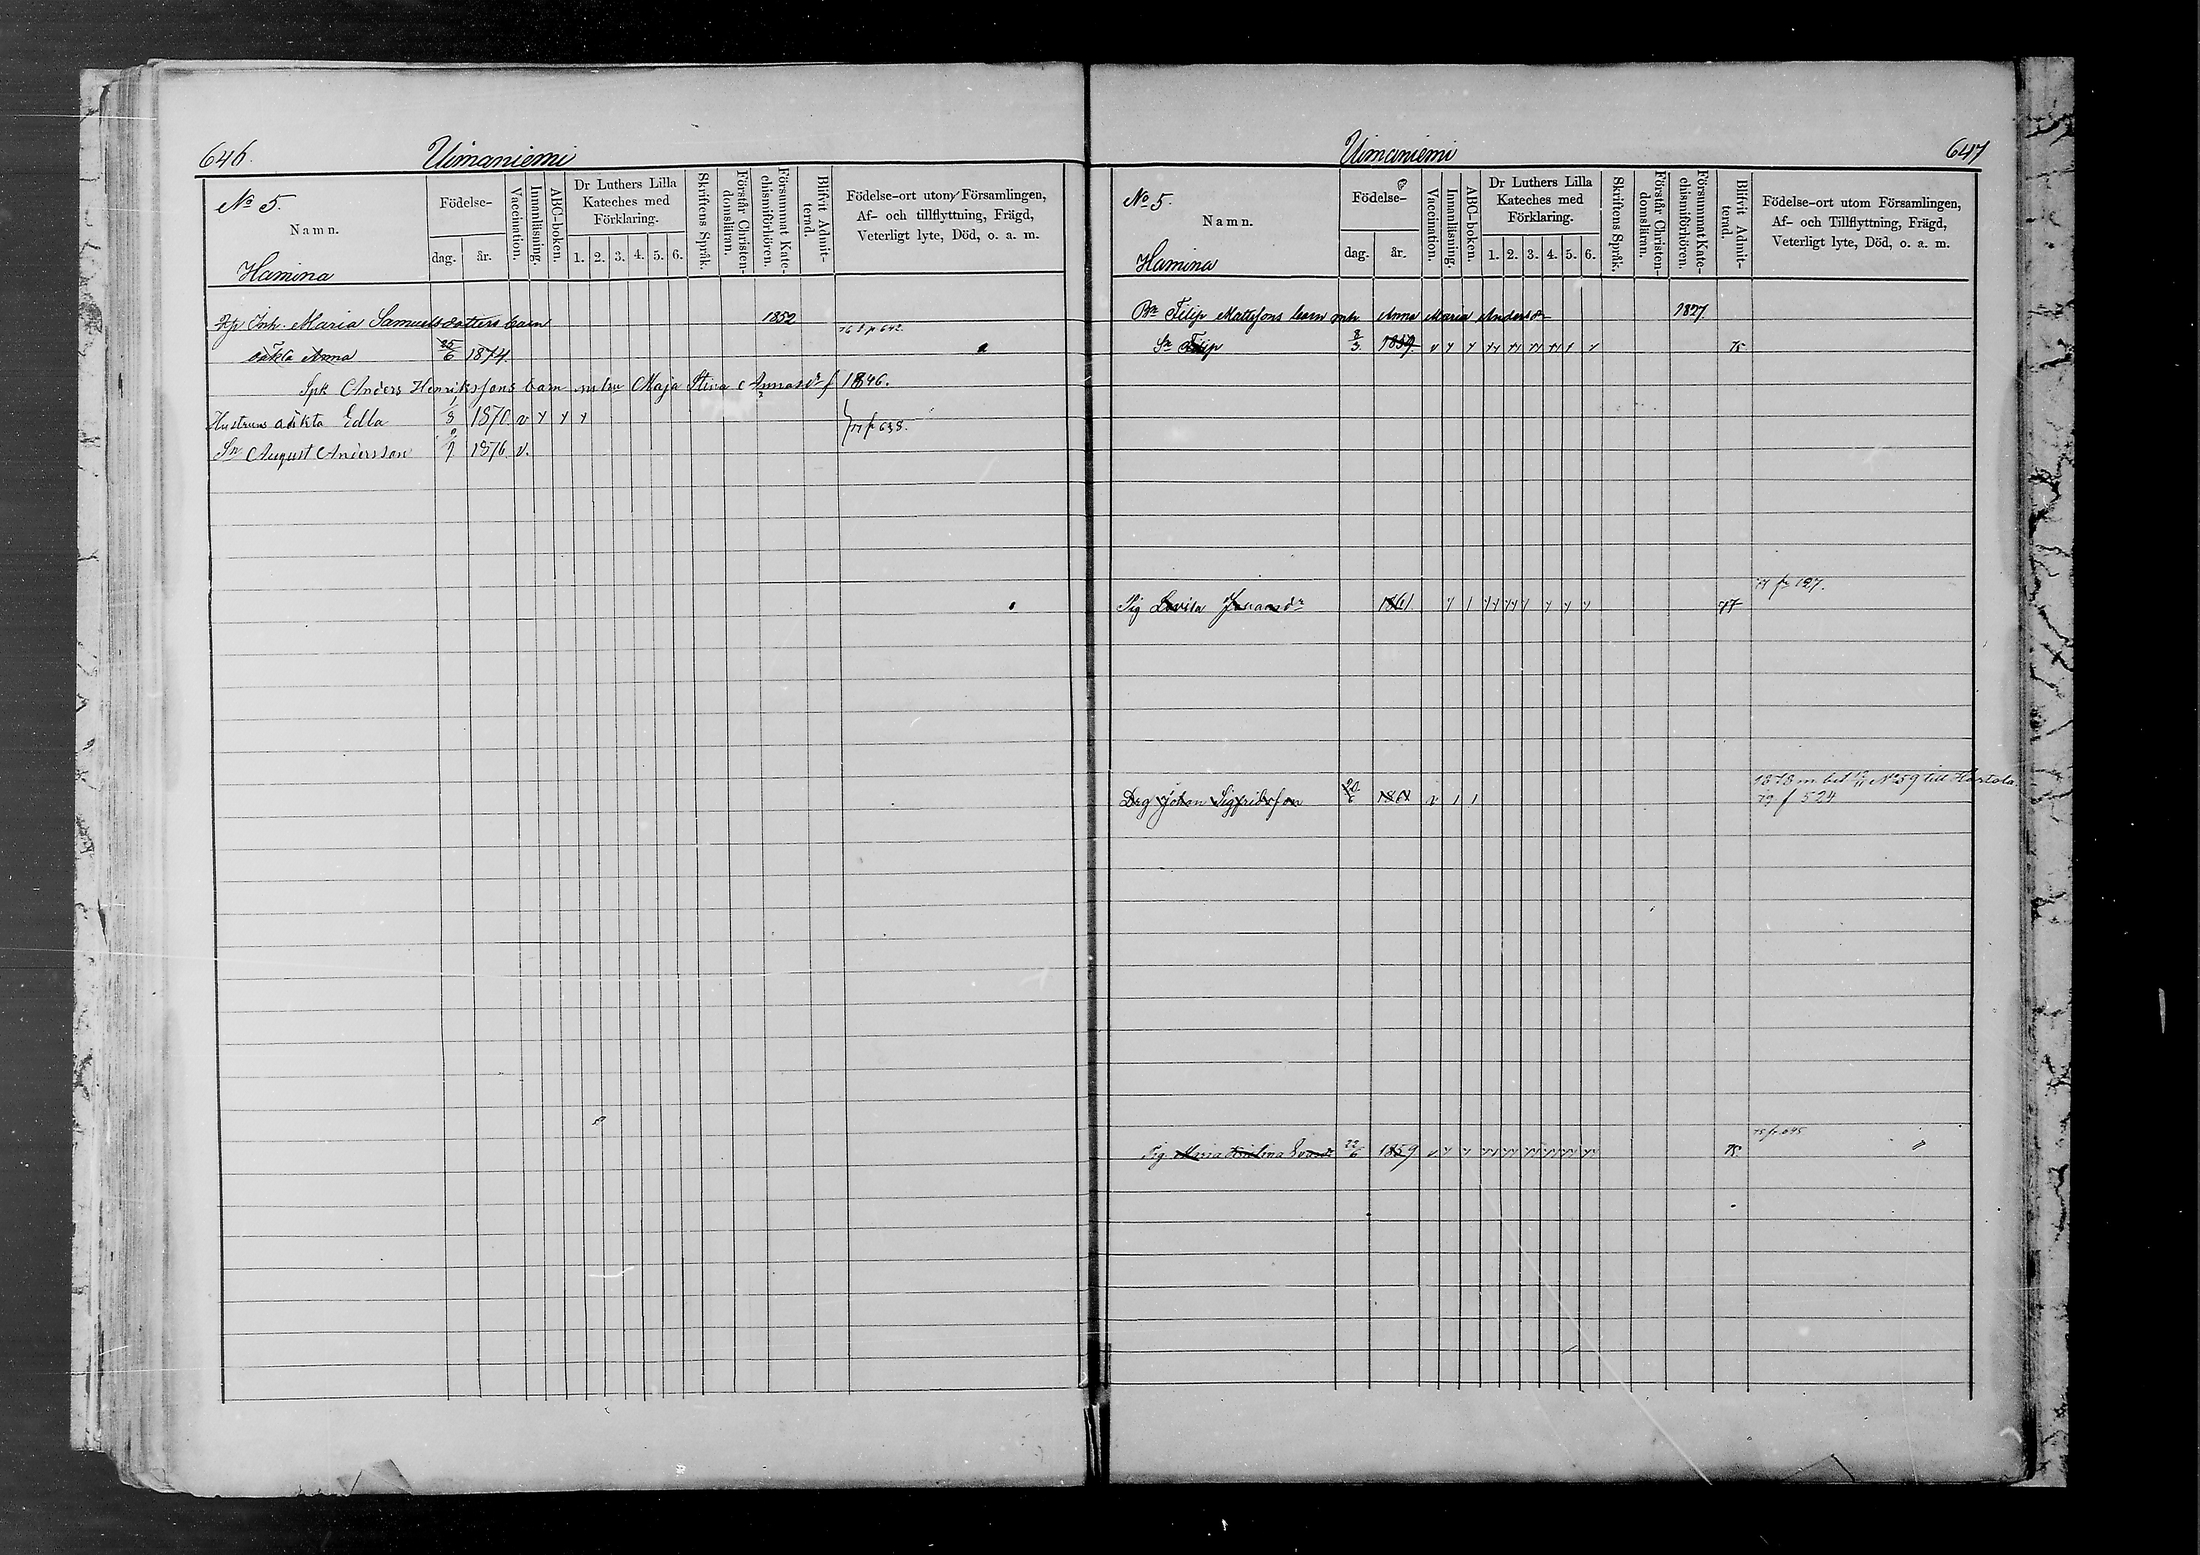 646. Uimaniemi
No 5.
Namn.
Hamina
Födelse-
dag. år.
Vaccination.
Innanläsning.
ABC-boken.
Dr Luthers Lilla Kateches med Förklaring.
1. 2. 3. 4. 5. 6.
Skriftens Språk.
Förstår Christendomsläran.
Försummat Katechismiförhören.
Blifvit Admitterad.
Födelse-ort utom Församlingen,
Af- och tillflyttning, Frägd,
Veterligt lyte, Död, o. a. m.
Inh. Maria Samuelsdotters barn 1852
oäkta Anna 25/6 1874. 76 p 642.
Spk Anders Henrikssons barn m hu Maja Stina Annasdr f 1846.
Hustruns oäkta Edla 1/8 1870. v
Sn August Andersson 1876. v. 77 fr 638.
Uimaniemi 647
No 5.
Namn.
Hamina
Födelse-
dag. år.
Vaccination.
Innanläsning.
ABC-boken.
Dr Luthers Lilla Kateches med Förklaring.
1. 2. 3. 4. 5. 6.
Skriftens Språk.
Förstår Christendomsläran.
Försummat Katechismiförhören.
Blifvit Admitterad.
Födelse-ort utom Församlingen,
Af- och Tillflyttning, Frägd,
Veterligt lyte, Död, o. a. m.
Filip Mattssons barn mhu Anna Maria Andersdr 1827
Sn Filip 8/3. 1859. v 75
77 fr 197.
Pig Lovisa Johansdr 1861. 77
1878 m bet No 59 till Hartola.
Drg Johan Sigfridsson 20/6 1861 v 79 f 524
Pig Maria Kristina 22/6 1859 v 75.